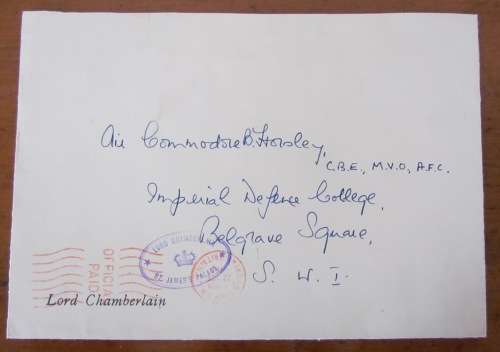 Air Commodore B. Horsley,
C.B.E., M.V.O., A.F.C.
Imperial Defence College,
Belgrave Square,
S. W. 1.
OFFICIAL
PAID
LORD CHAMBERLAIN
ST JAMES'S PALACE
Lord Chamberlain